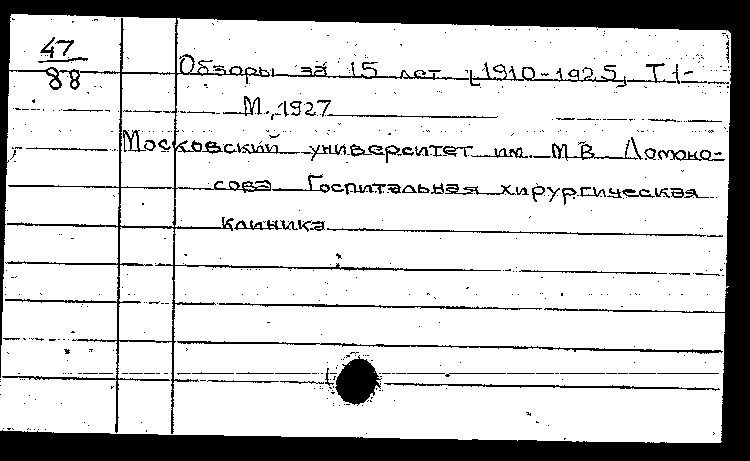 47
88
Обзоры за 15 лет [1910-1925], Т 1-
М., 1927
Московский университет им. М В Ломоно-
сова Госпитальная хирургическая
клиника